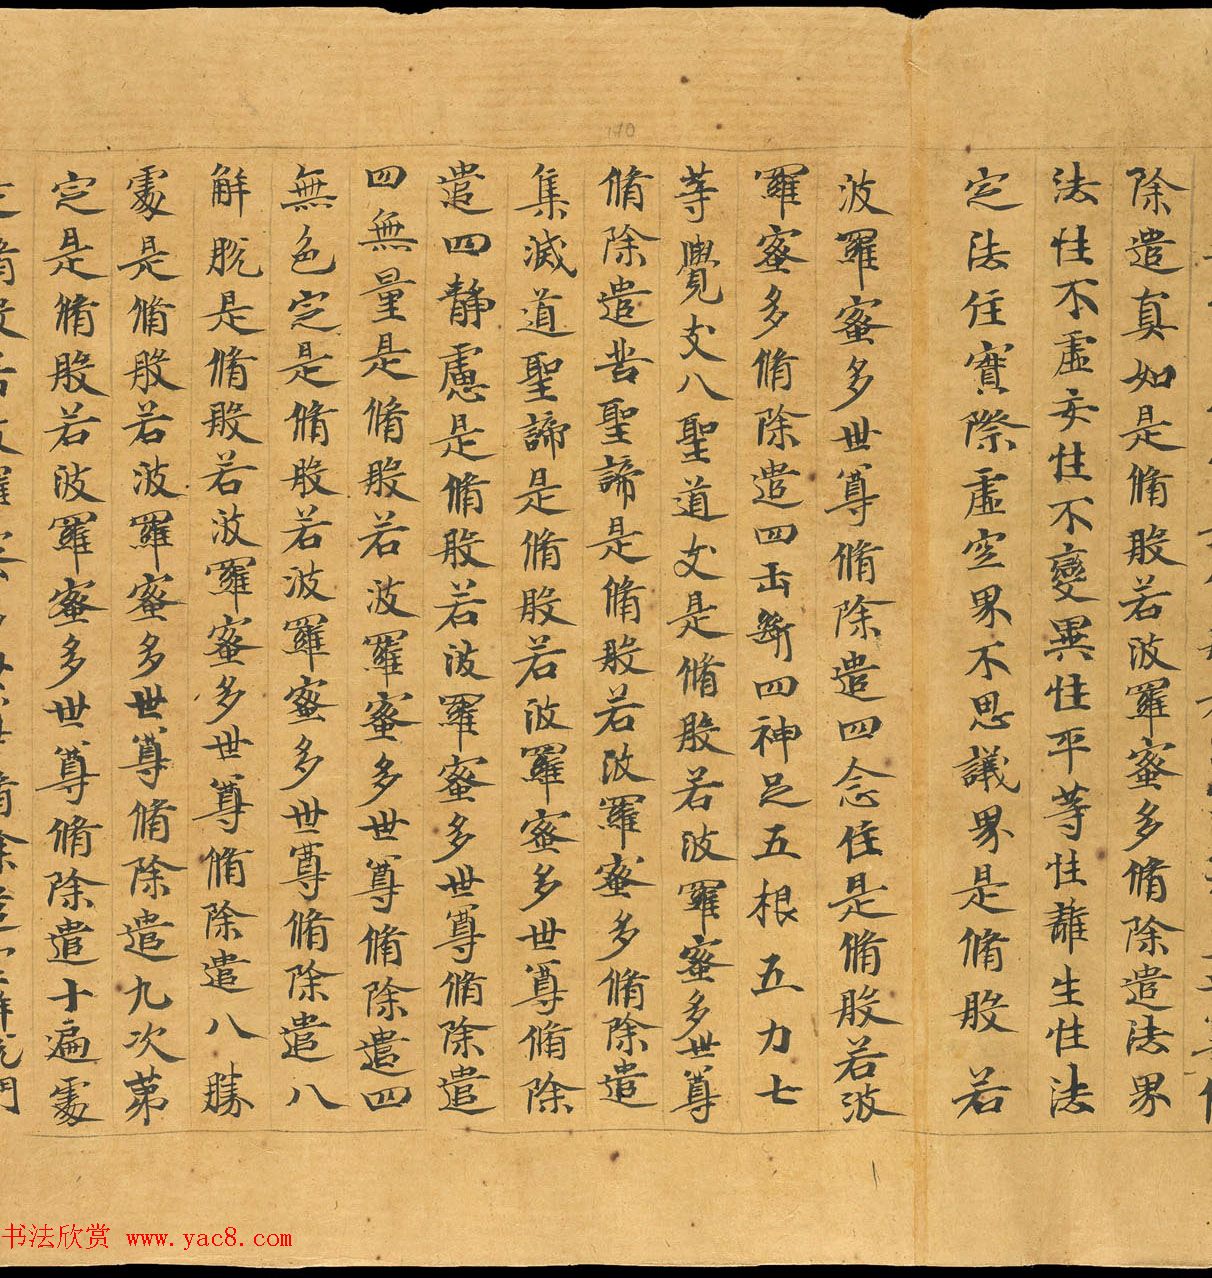 除遣真如是脩般若波羅蜜多脩除遣法界
法性不虛妄性不變異性平等性離生性法
定法住實際虛空界不思議界是脩般若
波羅蜜多世尊脩除遣四念住是脩般若波
羅蜜多脩除遣四正斷四神足五根五力七
等覺支八聖道支是脩般若波羅蜜多世尊
脩除遣苦聖諦是脩般若波羅蜜多脩除遣
集滅道聖諦是脩般若波羅蜜多世尊脩除
遣四靜慮是脩般若波羅蜜多世尊脩除遣
四無量是脩般若波羅蜜多世尊脩除遣四
無色定是脩般若波羅蜜多世尊脩除遣八
解脫是脩般若波羅蜜多世尊脩除遣八勝
處是脩般若波羅蜜多世尊脩除遣九次第
定是脩般若波羅蜜多世尊脩除遣十遍處
书法欣赏 www.yac8.com